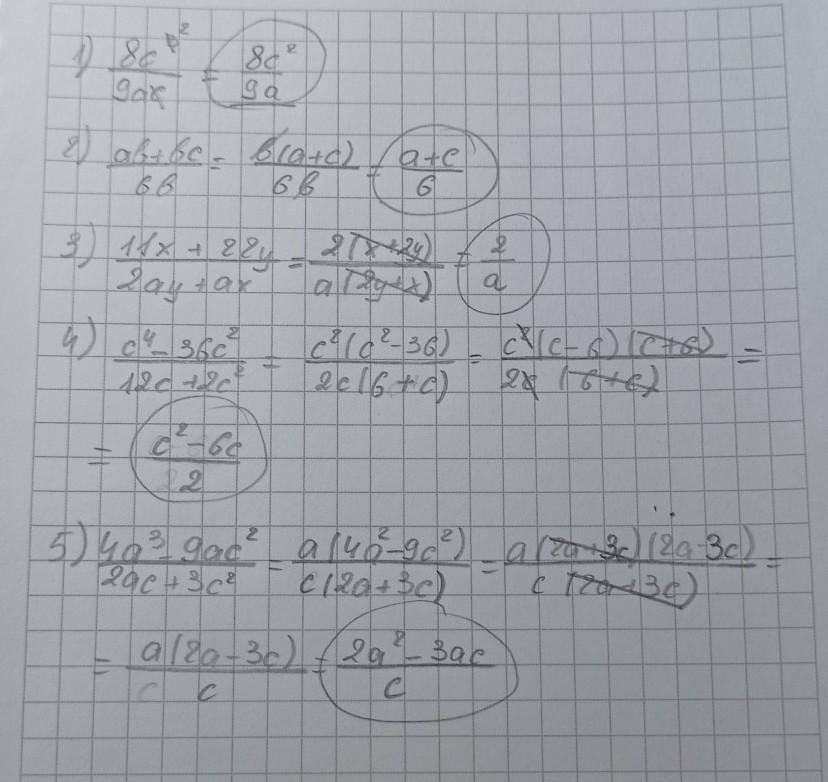 1) 8c^2/9ax = 8c²/9a
2) (ab+bc)/6b = b(a+c)/6b = (a+c)/6
3) (11x + 22y)/(2ay + ax) = 2(x+2y)/a(2y+x) = 2/a
4) (c⁴ - 36c²)/(12c + 2c²) = c²(c² - 36)/2c(6 + c) = c²(c - 6)(c+6)/2c(6+c) =
= (c² - 6c)/2
5) (4a³ - 9ac²)/(2ac + 3c²) = a(4a² - 9c²)/c(2a + 3c) = a(2a+3c)(2a-3c)/c(2a+3c) =
= a(2a - 3c)/c = (2a² - 3ac)/c